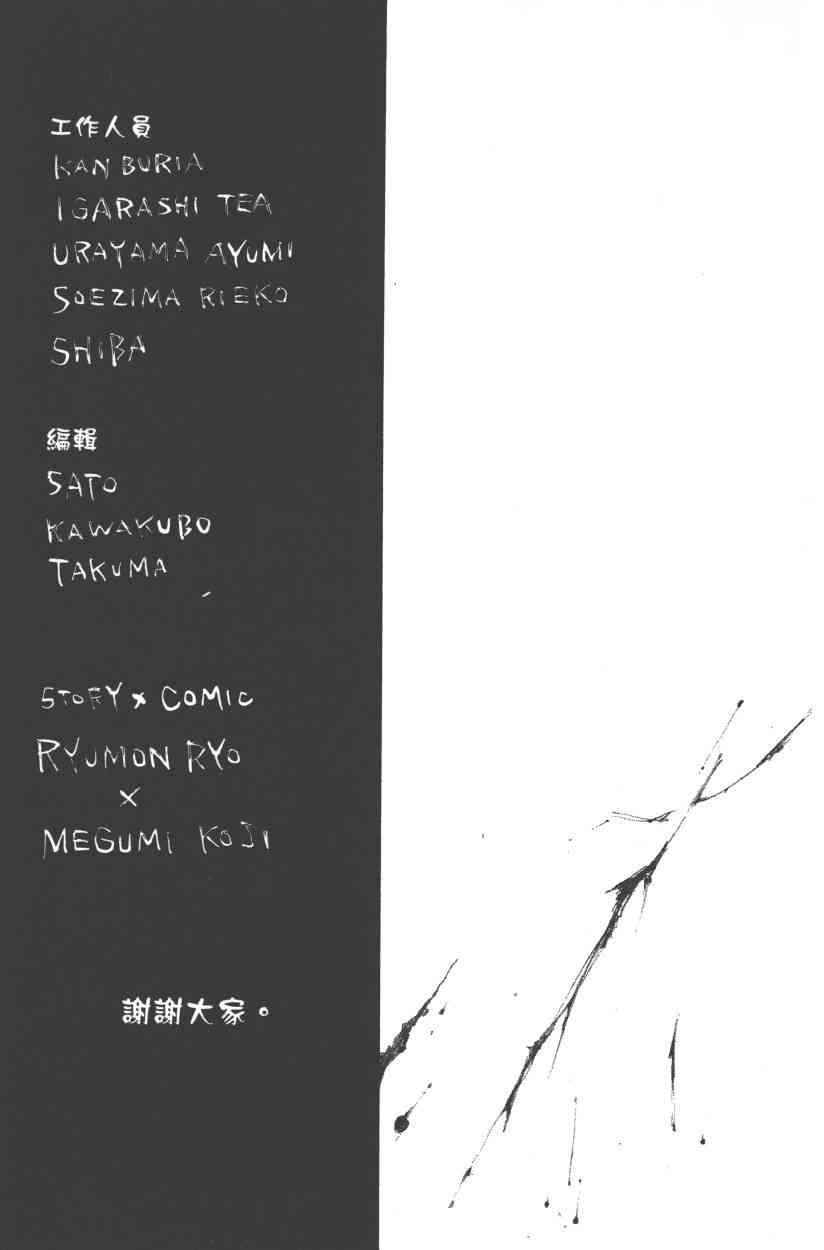 工作人員
KAN BURIA
IGARASHI TEA
URAYAMA AYUMI
SOEZIMA RIEKO
SHIBA
編輯
SATO
KAWAKUBO
TAKUMA
STORY × COMIC
RYUMON RYO
×
MEGUMI KOJI
謝謝大家。